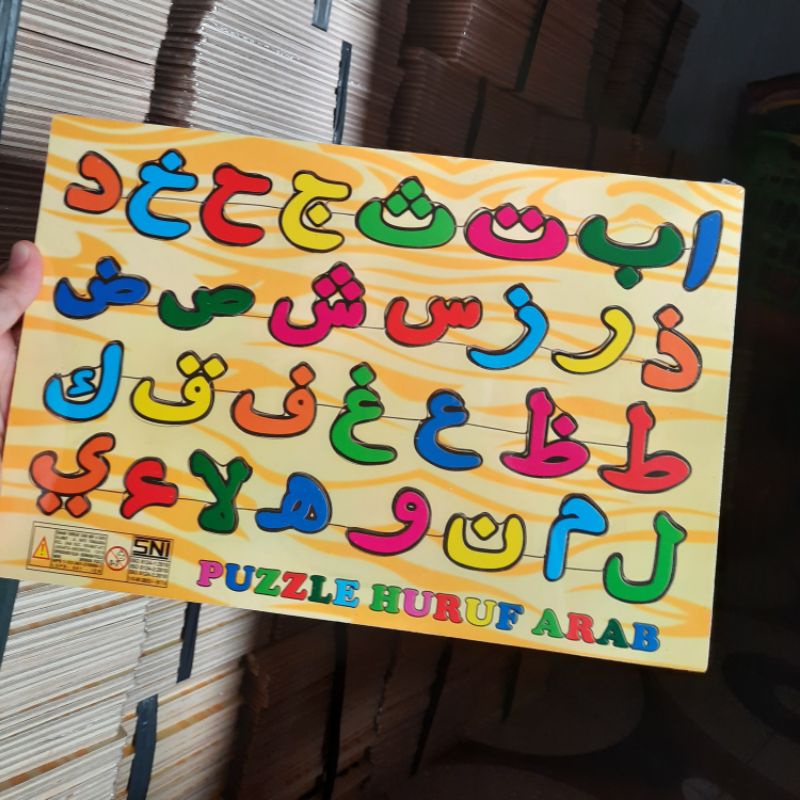 ا ب ت ث ج ح خ د
ذ ر ز س ش ص ض
ط ظ ع غ ف ق ك
ل م ن و ه لا ء ي
SNI
PUZZLE HURUF ARAB